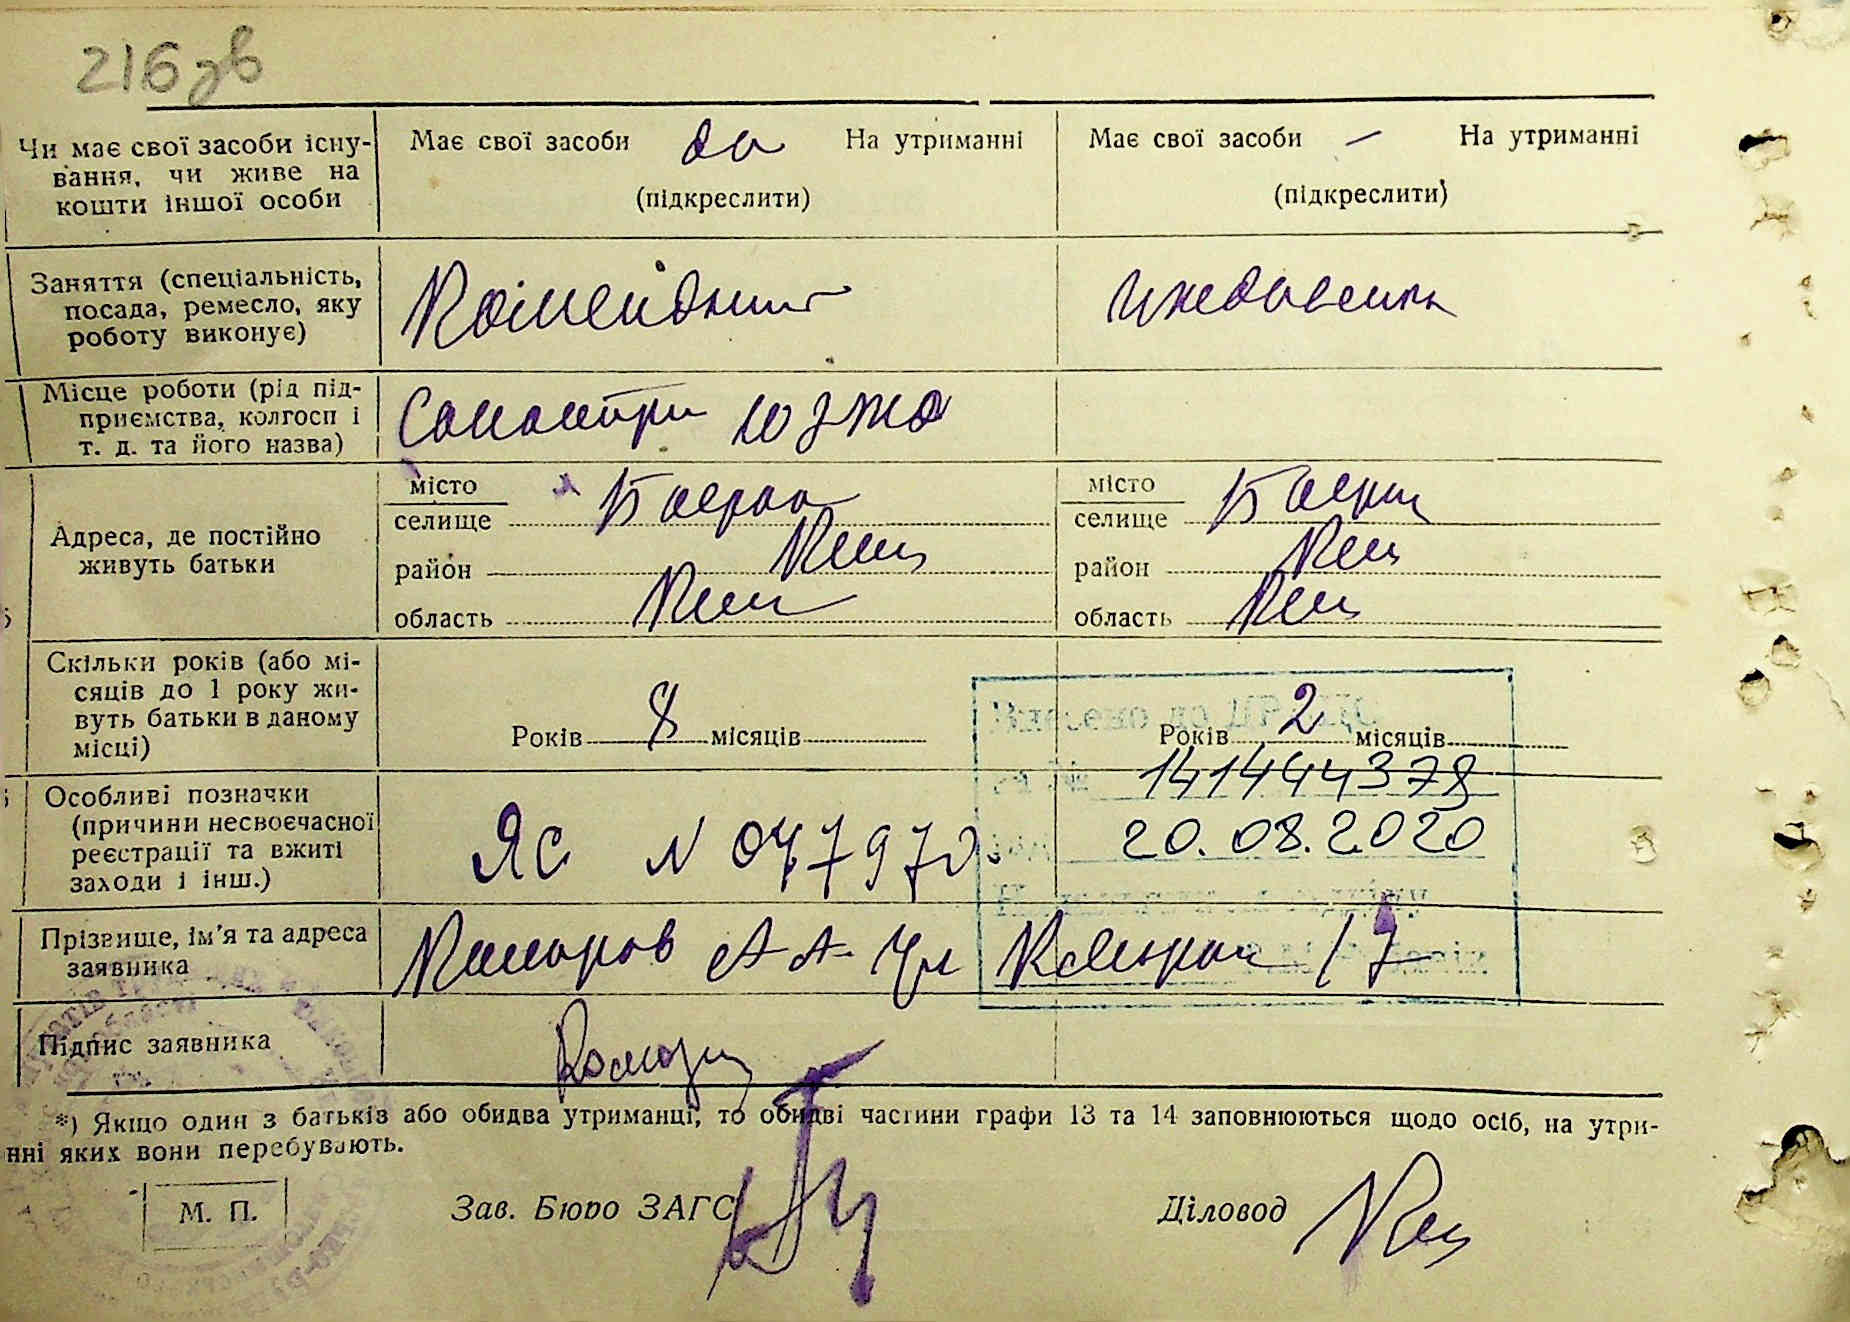 216 зв
Чи має свої засоби існу-
вання, чи живе на
кошти іншої особи
Має свої засоби да На утриманні
(підкреслити)
Має свої засоби — На утриманні
(підкреслити)
Заняття (спеціальність,
посада, ремесло, яку
роботу виконує)
Комендант
иждивенка
Місце роботи (рід під-
приємства, колгосп і
т. д. та його назва)
Адреса, де постійно
живуть батьки
місто
селище
район
область
місто
селище
район
область
Скільки років (або мі-
сяців до 1 року жи-
вуть батьки в даному
місці)
Років 8 місяців
Років 2 місяців
141444378
20.08.2020
Особливі позначки
(причини несвоєчасної
реєстрації та вжиті
заходи і інш.)
ЯС N 047970
Прізвище, ім'я та адреса
заявника
Комаров А А Ул 17
Підпис заявника
*) Якщо один з батьків або обидва утриманці, то обидві частини графи 13 та 14 заповнюються щодо осіб, на утри-
нні яких вони перебувають.
М. П.
Зав. Бюро ЗАГС
Діловод